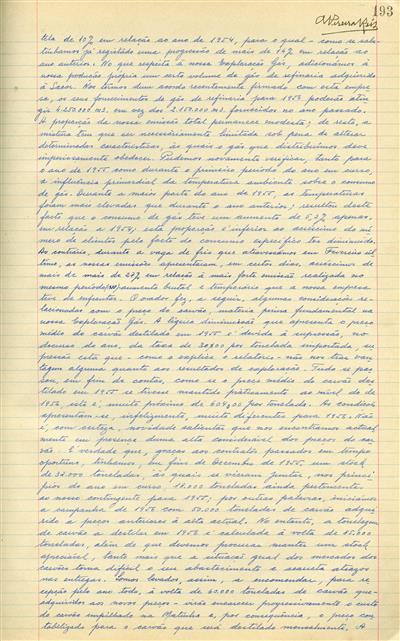 193
tela de 10% em relação ao ano de 1954, para o qual - como se sabe -
tínhamos já registado uma progressão de mais de 14% em relação ao
ano anterior. No que respeita à nossa Exploração Gás, adicionámos à
nossa produção própria um certo volume de gás de refinaria adquirido
à Sacor. Nos têrmos dum acordo recentemente firmado com esta empre-
sa, os seus fornecimentos de gás de refinaria para 1956 poderão atin-
gir 4.250.000 m3, em vez dos 2.160.000 m3 fornecidos no ano passado.
A proporção da nossa emissão total permanece modesta; de resto, a
mistura tem que ser necessàriamente limitada sob pena de alterar
determinadas características, às quais o gás que distribuimos deve
imperiosamente obedecer. Pudemos novamente verificar, tanto para
o ano de 1955 como durante o primeiro período do ano em curso,
a influência primordial da temperatura ambiente sobre o consumo
de gás. Durante a maior parte do ano de 1955, as temperaturas
foram mais elevadas que durante o ano anterior; resultou deste
facto que o consumo de gás teve um aumento de 5,2% apenas,
em relação a 1954; esta proporção é inferior ao acréscimo do nú-
mero de clientes pelo facto do consumo específico ter diminuido.
Ao contrário, durante a vaga de frio que atravessámos em Fevereiro úl-
timo, as nossas emissões apresentaram, em certos dias, acréscimos de
mais de 27% em relação à mais forte emissão realizada no
mesmo período, aumento brutal e temporário que a nossa empresa
teve de enfrentar. O orador fez, a seguir, algumas considerações re-
lacionadas com o preço do carvão, matéria prima fundamental na
nossa Exploração Gás. A ligeira diminuição que apresenta o preço
médio do carvão destilado em 1955 é devida à supressão, no
decurso do ano, da taxa de 30$00 por tonelada importada, su-
pressão esta que - como o explica o relatório - não nos traz van-
tagem alguma quanto aos resultados de exploração. Tudo se pas-
sou, em fim de contas, como se o preço médio do carvão des-
tilado em 1955 se tivesse mantido pràticamente ao nível do de
1954, isto é, muito próximo de 604$00 por tonelada. As condições
apresentam-se, infelizmente, muito diferentes para 1956. Não
é, com certeza, novidade salientar que nos encontramos actual-
mente em presença duma alta considerável dos preços do car-
vão. É verdade que, graças aos contratos passados em tempo
oportuno, tínhamos, em fim de Dezembro de 1955, um stock
de 32.000 toneladas, às quais se vieram juntar, nos princí-
pios do ano em curso, 18.000 toneladas ainda pertencentes
ao nosso contingente para 1955; por outras palavras, iniciámos
a campanha de 1956 com 50.000 toneladas de carvão adqui-
rido a preços anteriores à alta actual. No entanto, a tonelagem
de carvão a destilar em 1956 é calculada à volta de 85.000
toneladas, além de que devemos procurar manter um stock
apreciável, tanto mais que a situação geral dos mercados dos
carvões torna difícil o seu abastecimento e acarreta atrazos
nas entregas. Somos levados, assim, a encomendar, para re-
cepção pelo ano todo, à volta de 60.000 toneladas de carvão que -
adquiridos aos novos preços - virão encarecer progressivamente o custo
do carvão empilhado na Matinha e, por consequência, o preço con-
tabilizado para o carvão que será destilado mensalmente. A